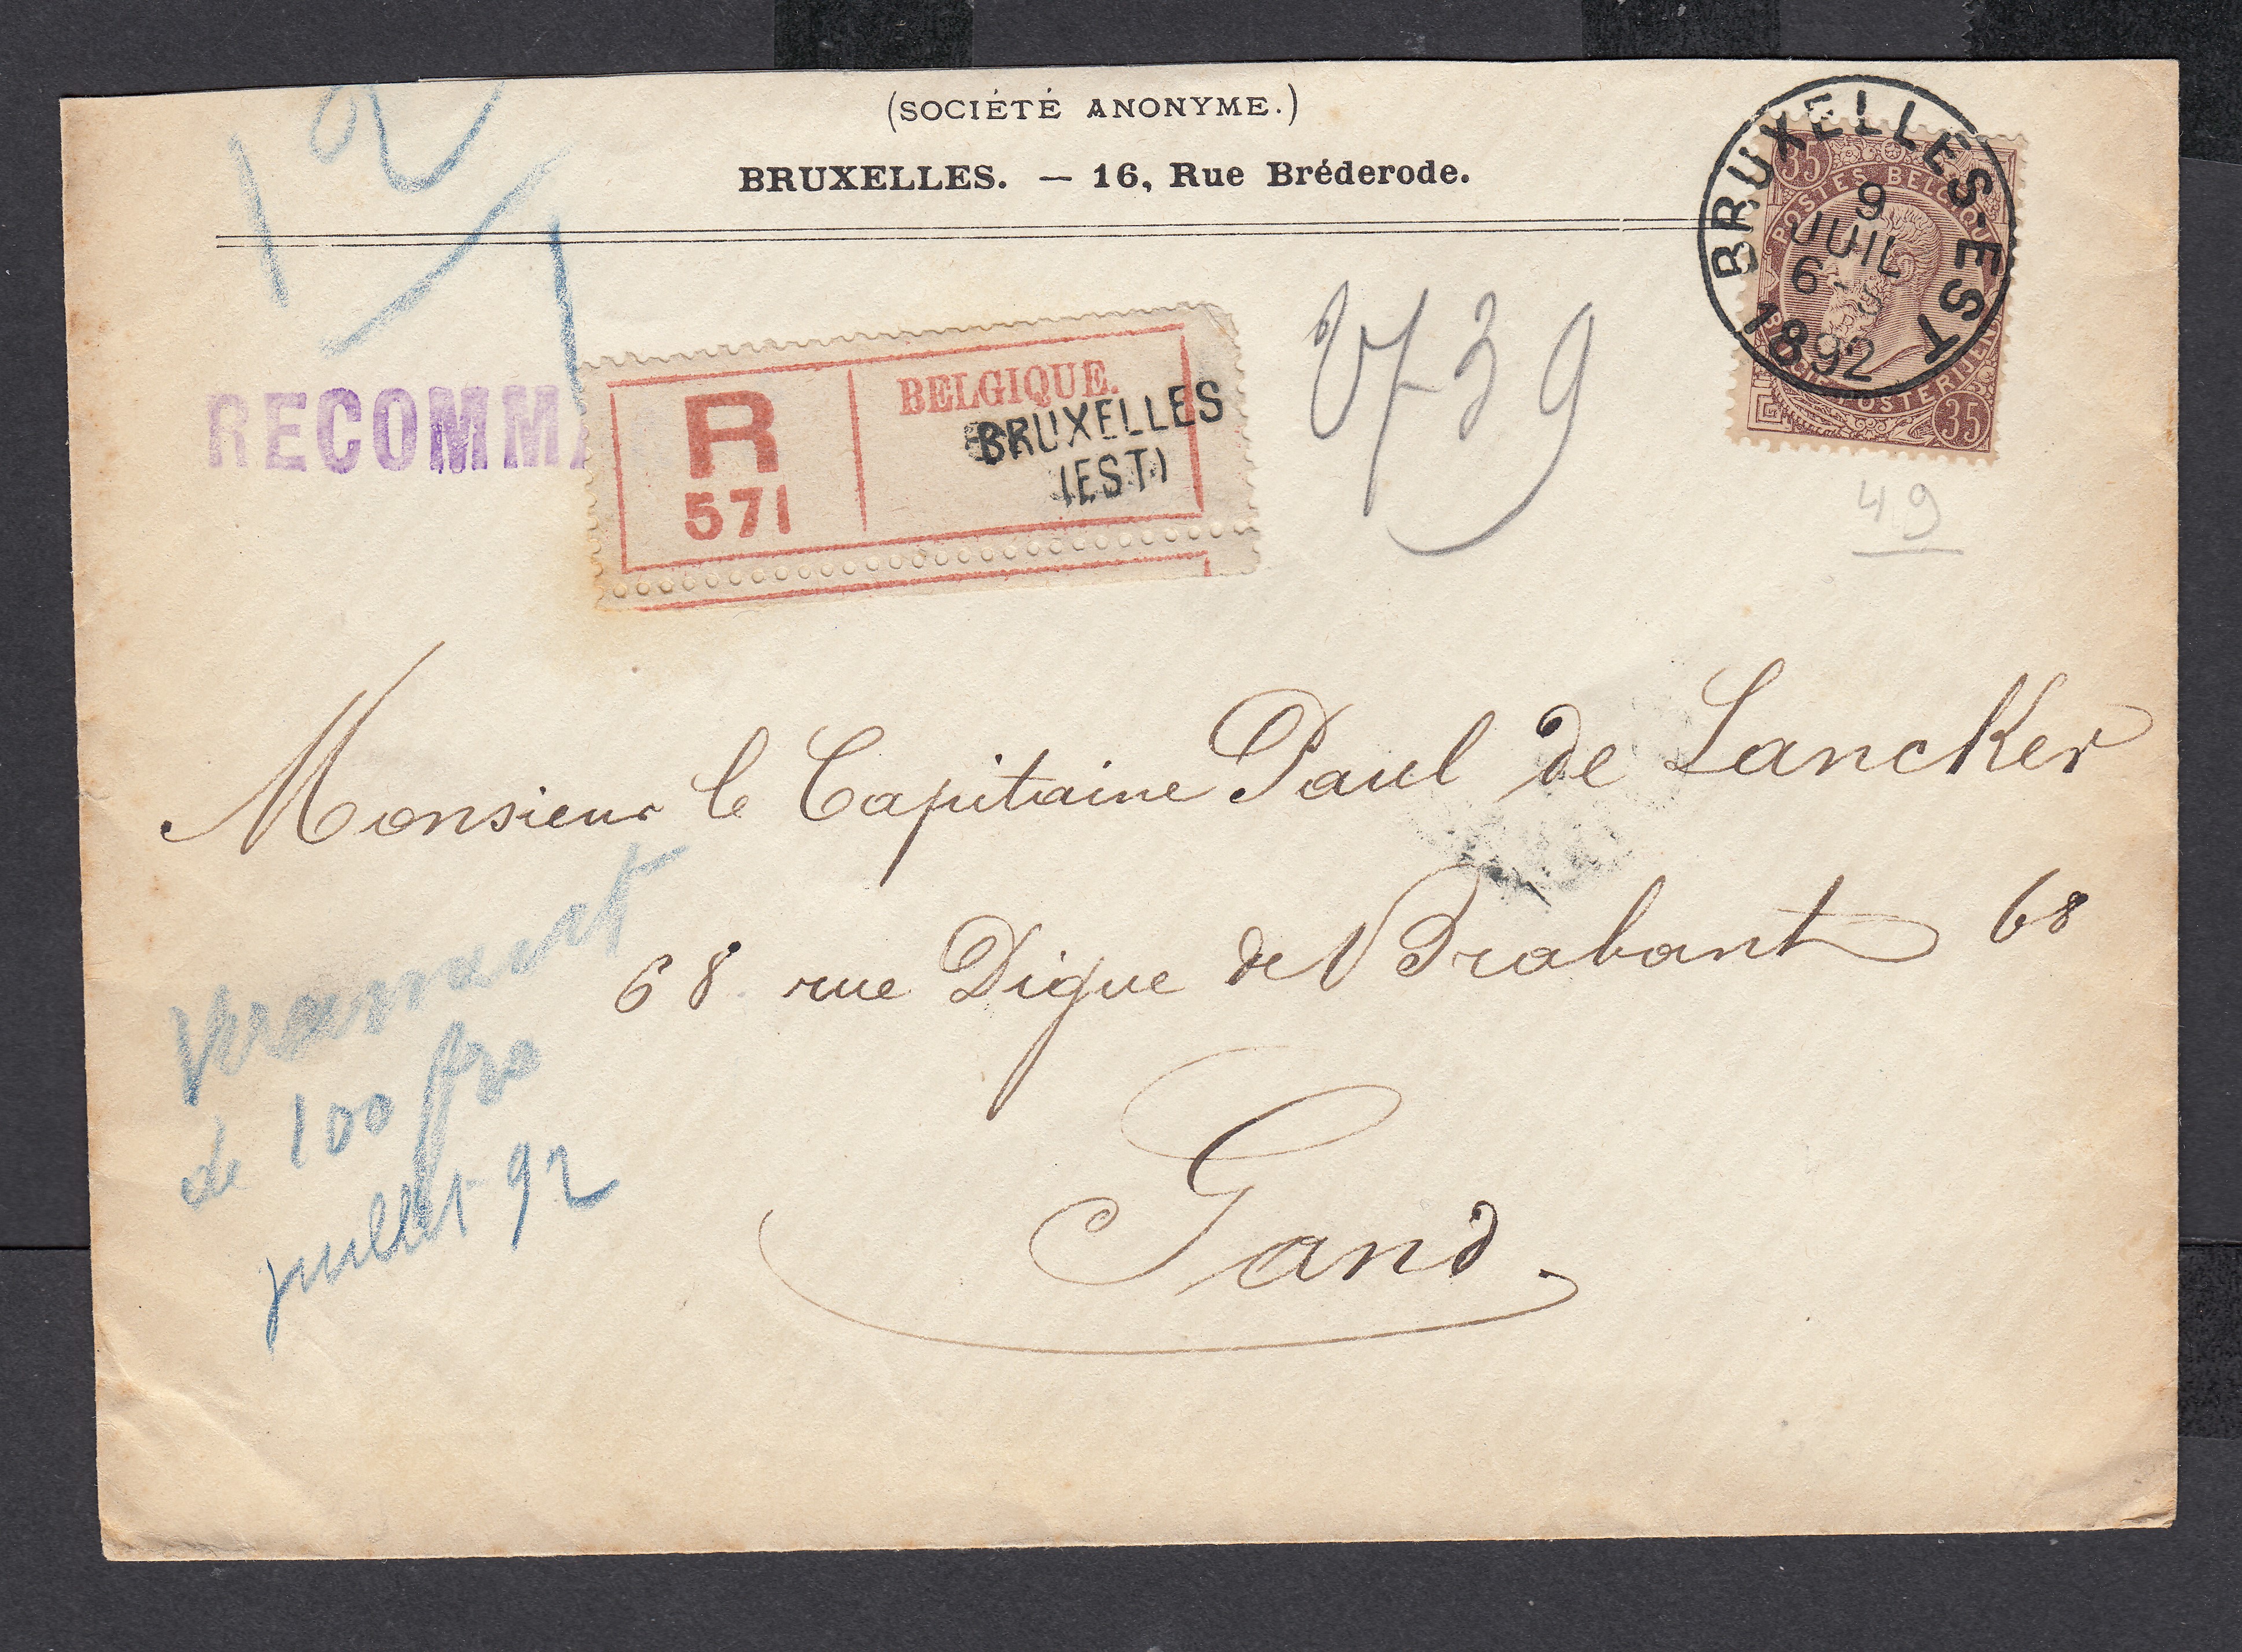 (SOCIÉTÉ ANONYME.)
BRUXELLES. — 16, Rue Bréderode.
BRUXELLES-EST
9
JUIL
6
1892
35
POSTES BELGIQUE
BELGIE POSTERIJEN
35
12
RECOMMA
R
571
BELGIQUE.
BRUXELLES
(EST)
39
49
Monsieur le Capitaine Paul de Lancker
68 rue Digue de Brabant 68
Gand
Versement
de 100 frs
juillet 92